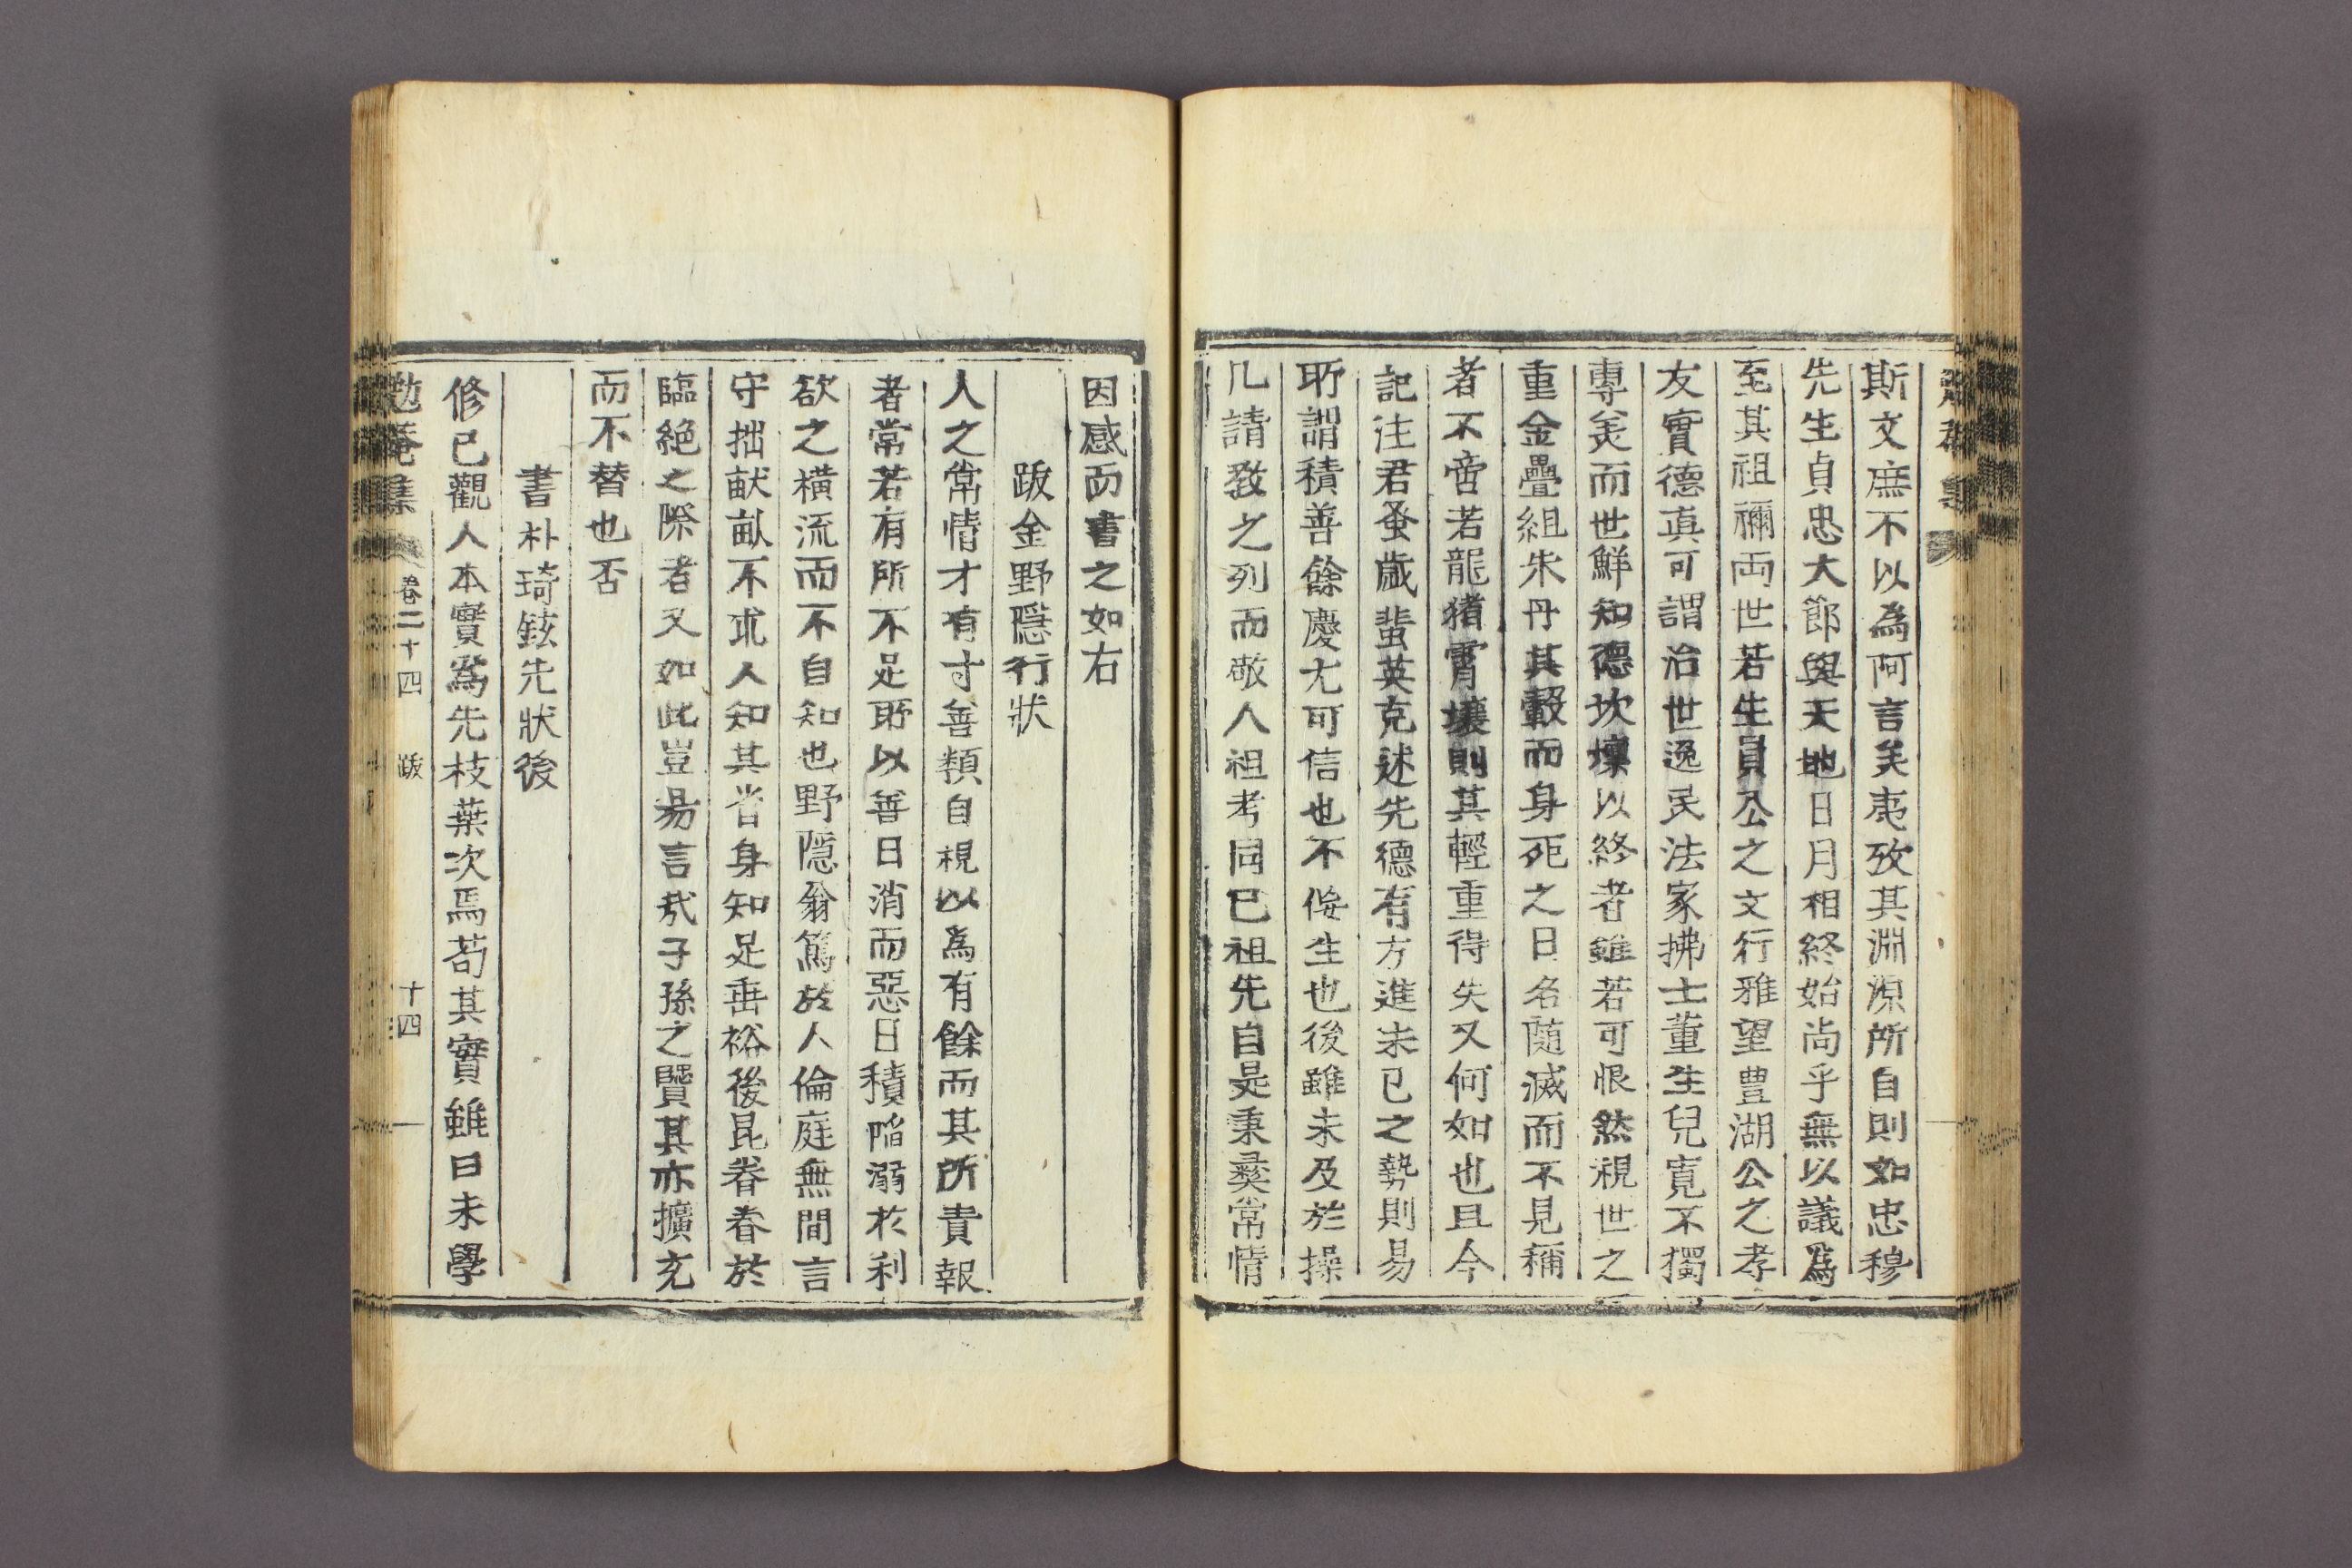 斯文庶不以為阿言矣夷攷其淵源所自則如忠穆
先生貞忠大節與天地日月相終始尚乎無以議爲
至其祖禰両世若生員公之文行雅望豊湖公之孝
友實德真可謂治世逸民法家拂士董生兒寬不獨
專美而世鮮知德坎壈以終者雖若可恨然視世之
重金疊組朱丹其轂而身死之日名隨滅而不見稱
者不啻若龍猪霄壤則其輕重得失又何如也且今
記注君蚤歲蜚英克述先德有方進未已之勢則易
所謂積善餘慶尤可信也不佞生也後雖未及於操
几請教之列而敬人祖考同已祖先自是秉彝常情
因感而書之如右
跋金野隱行狀
人之常情才有寸善類自視以為有餘而其所貴報
者常若有所不足所以善日消而惡日積陷溺於利
欲之横流而不自知也野隱翁篤於人倫庭無間言
守拙畎畝不求人知其省身知足垂裕後昆眷眷於
臨絕之際者又如此豈易言哉子孫之賢其亦擴充
而不替也否
書朴琦鉉先狀後
修已觀人本實爲先枝葉次焉苟其實雖曰未學
勉菴集 卷二十四 跋 十四